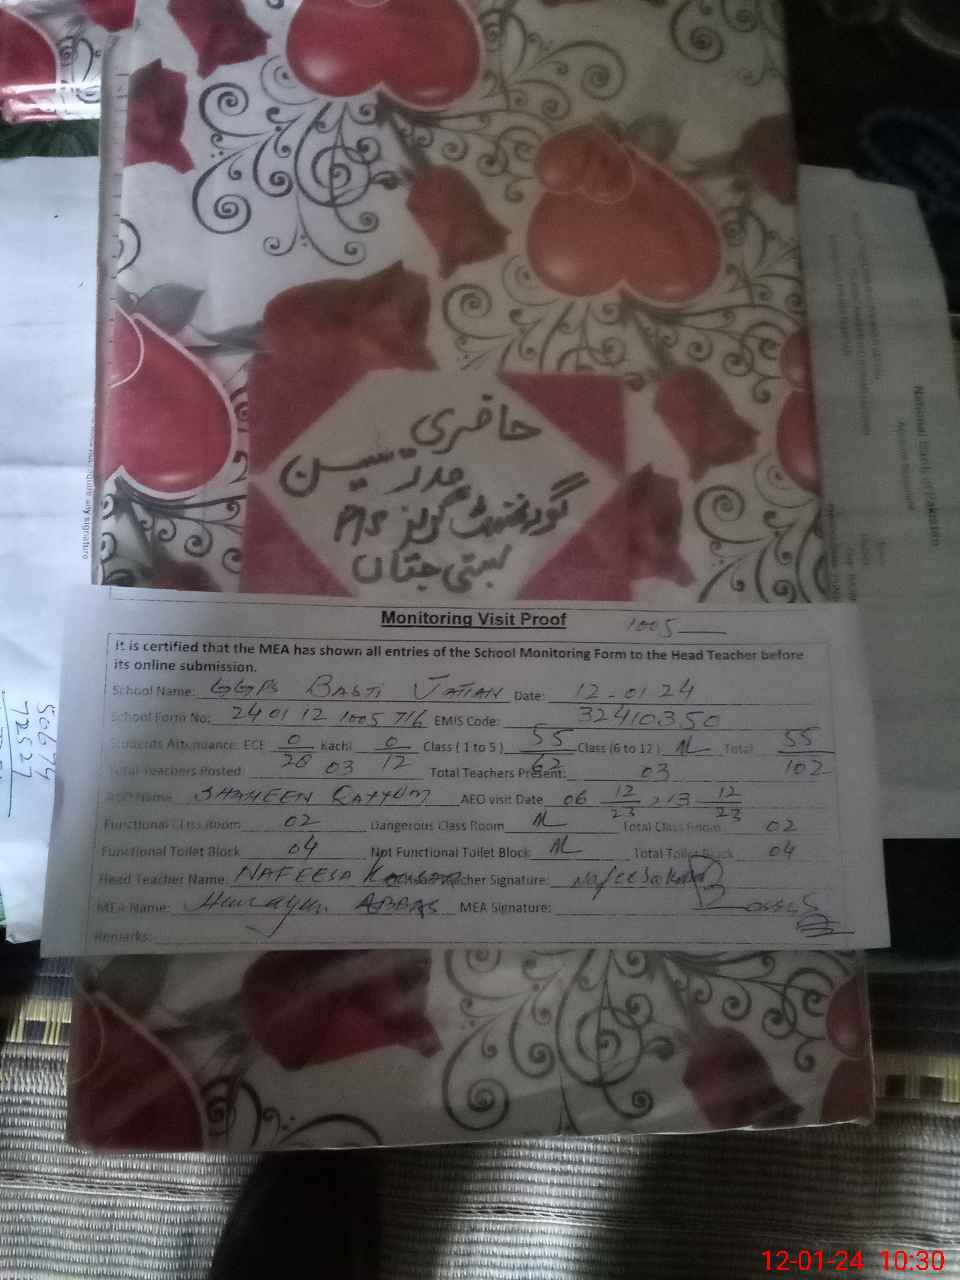 حاضری
مدرسین
گورنمنٹ گرلز
بستی جتاں
Monitoring Visit Proof 1005
It is certified that the MEA has shown all entries of the School Monitoring Form to the Head Teacher before
its online submission.
School Name: GGPS BASTI JATIAN Date: 12-01-24
School Form No: 24 01 12 1005 716 EMIS Code: 32410350
Students Attendance: ECE 0/28 Kachi 0/12 Class ( 1 to 5 ) 55/62 Class (6 to 12 ) NL Total 55/102
Total Teachers Posted: 03 Total Teachers Present: 03
AEO Name: SHAHEEN QAYYUM AEO visit Date 06 12/23, 13 12/23
Functional Class Room 02 Dangerous Class Room NL Total Class Room 02
Functional Toilet Block 04 Not Functional Toilet Block NL Total Toilet Block 04
Head Teacher Name: NAFEESA Teacher Signature: Nafeesa
MEA Name: Humayun ABBAS MEA Signature:
Remarks:
National Bank of Pakistan
any signature
50674
72527
12-01-24 10:30